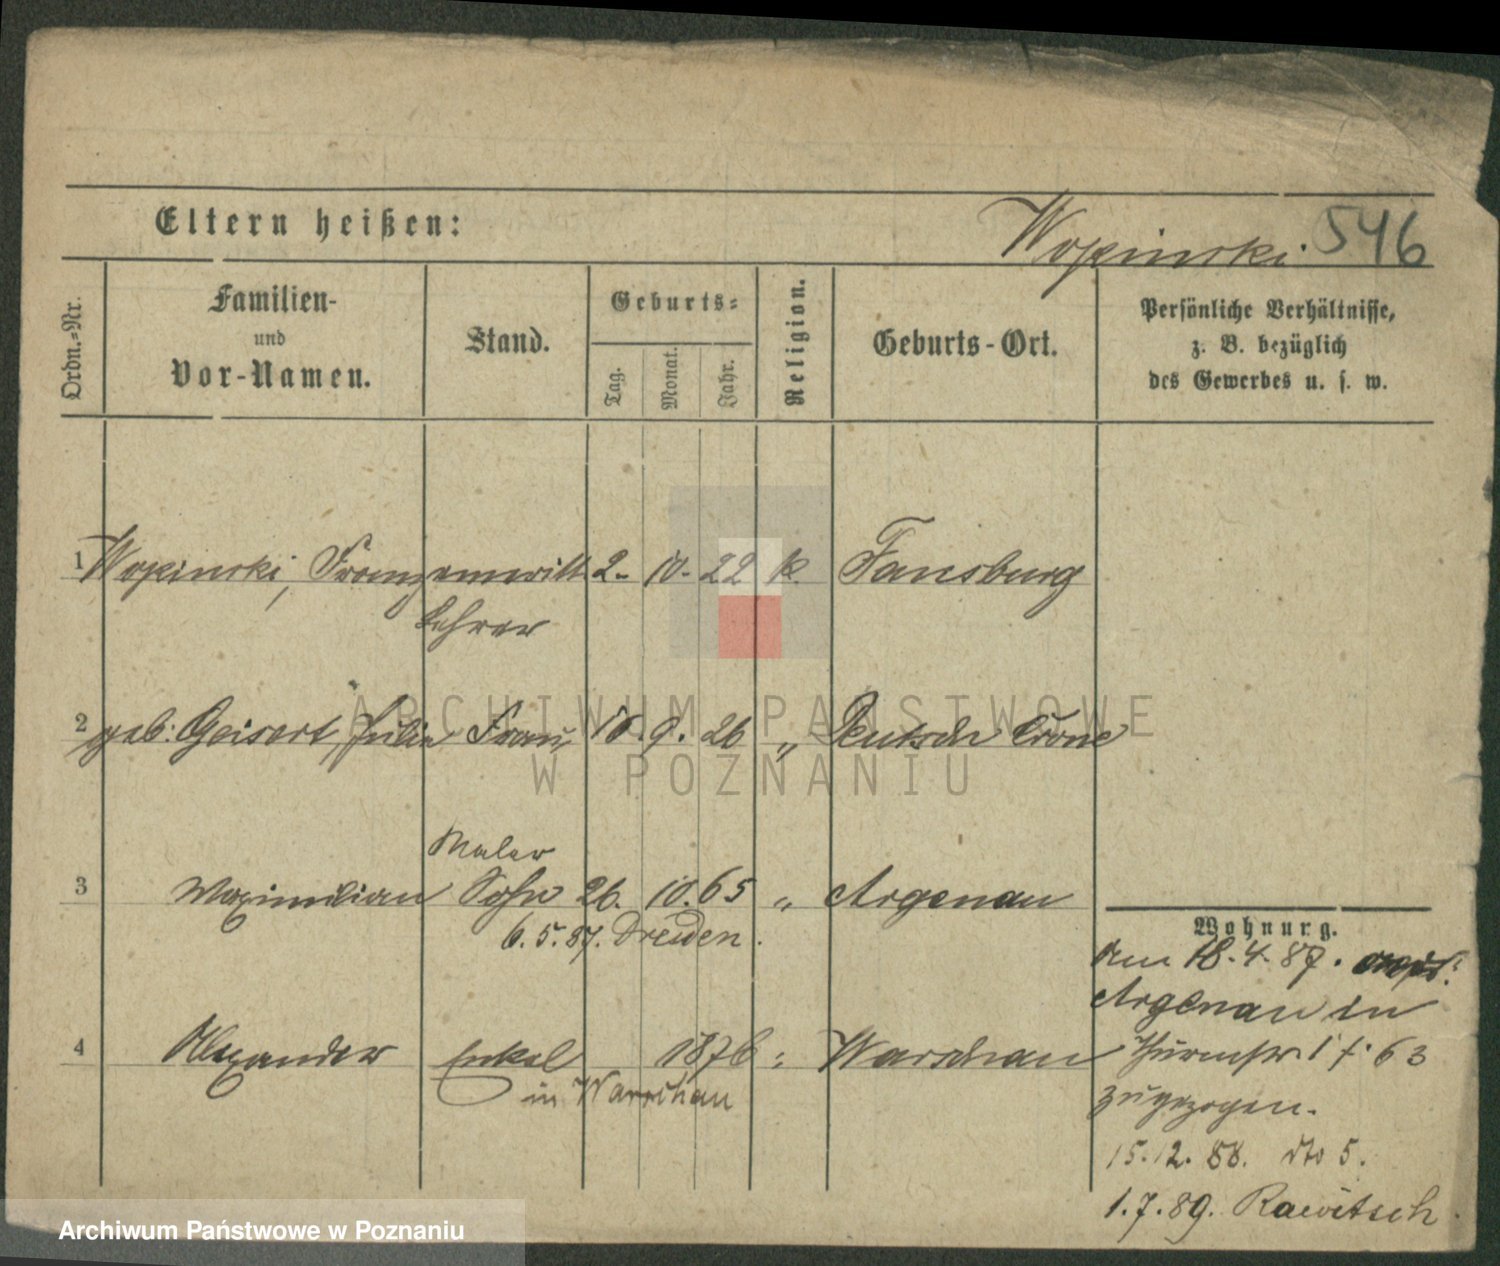 Eltern heißen:
Wopinski 546
Ordn.=Nr.
Familien-
und
Vor-Namen.
Stand.
Geburts=
Tag.
Monat.
Jahr.
Religion.
Geburts-Ort.
Persönliche Verhältnisse,
z. B. bezüglich
des Gewerbes u. s. w.
1 Wopinski, Franz emeritt 2. 10. 22 k. Fansburg
Lehrer
2 geb. Geisert, Julie Frau 10. 9. 26 " Deutsch Crone
Maler
3 Maximilian Sohn 26. 10. 65 " Argenau
6. 5. 87. Dresden.
Wohnung.
den 18. 4. 87.
Argenau in
4 Alexander Enkel 1876 " Warschau
63
in Warschau
zugezogen.
15. 12. 88. dto 5.
1. 7. 89. Rawitsch.
ARCHIWUM PAŃSTWOWE
W POZNANIU
Archiwum Państwowe w Poznaniu